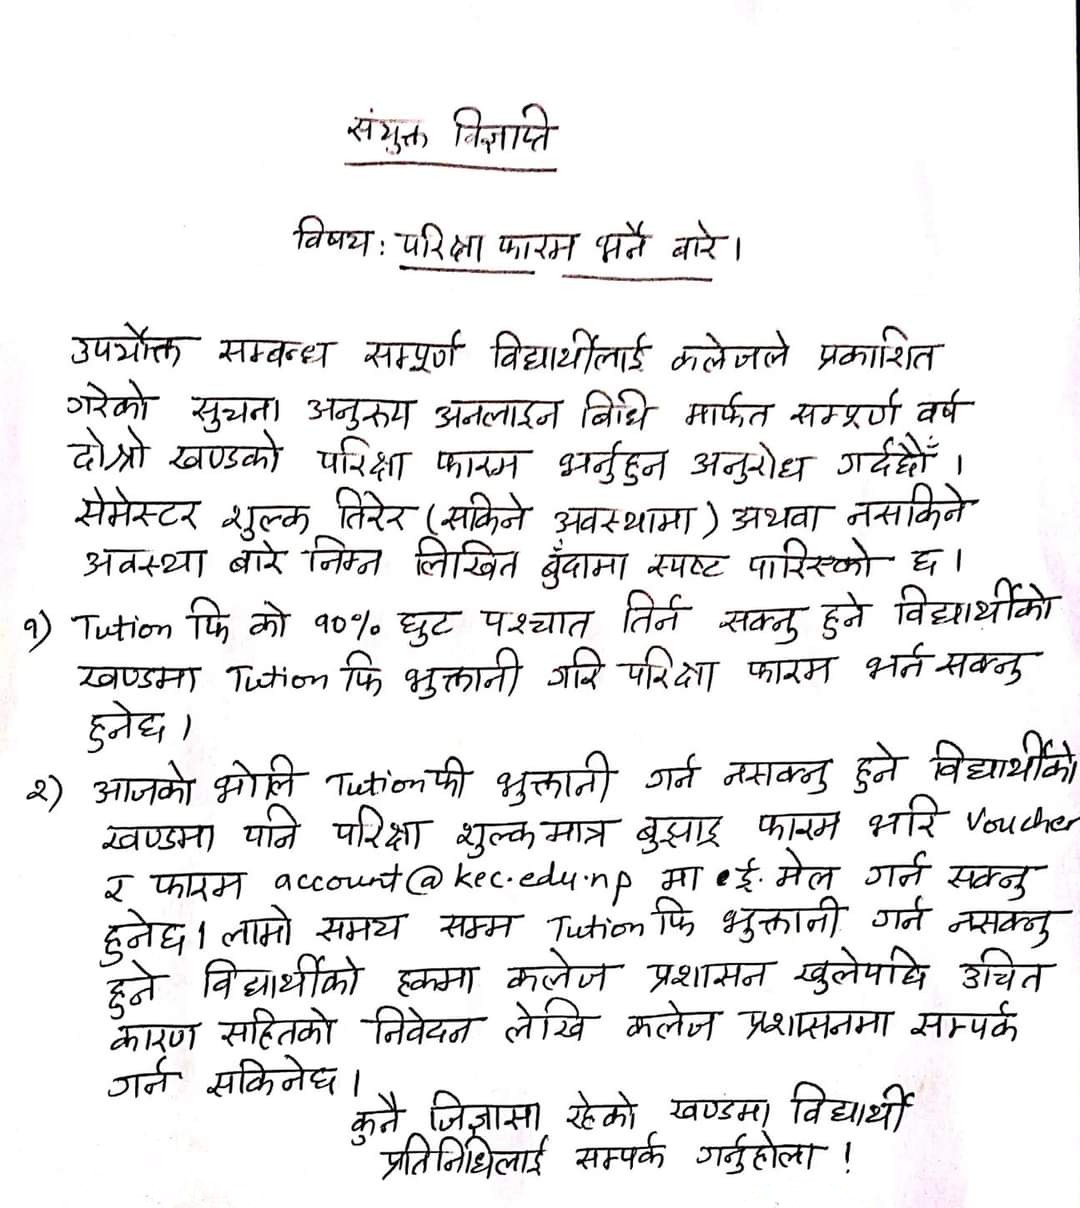 संयुक्त विज्ञाप्ति
विषय: परिक्षा फारम भर्ने बारे।
उपर्योक्त सम्बन्ध सम्पूर्ण विद्यार्थीलाई कलेजले प्रकाशित
गरेको सुचना अनुरुप अनलाइन बिधि मार्फत सम्पूर्ण वर्ष
दोश्रो खण्डको परिक्षा फारम भर्नुहुन अनुरोध गर्दछौँ।
सेमेस्टर शुल्क तिरेर (सकिने अवस्थामा) अथवा नसकिने
अवस्था बारे निम्न लिखित बुँदामा स्पष्ट पारिएको छ।
१) Tution फि को १०% छुट पश्चात तिर्न सक्नु हुने विद्यार्थीको
खण्डमा Tution फि भुक्तानी गरि परिक्षा फारम भर्न सक्नु
हुनेछ।
२) आजको भोलि Tution फी भुक्तानी गर्न नसक्नु हुने विद्यार्थीको
खण्डमा पनि परिक्षा शुल्क मात्र बुझाइ फारम भरि Voucher
र फारम account@kec.edu.np मा ई. मेल गर्न सक्नु
हुनेछ। लामो समय सम्म Tution फि भुक्तानी गर्न नसक्नु
हुने विद्यार्थीको हकमा कलेज प्रशासन खुलेपछि उचित
कारण सहितको निवेदन लेखि कलेज प्रशासनमा सम्पर्क
गर्न सकिनेछ।
कुनै जिज्ञासा रहेको खण्डमा विद्यार्थी
प्रतिनिधिलाई सम्पर्क गर्नुहोला !